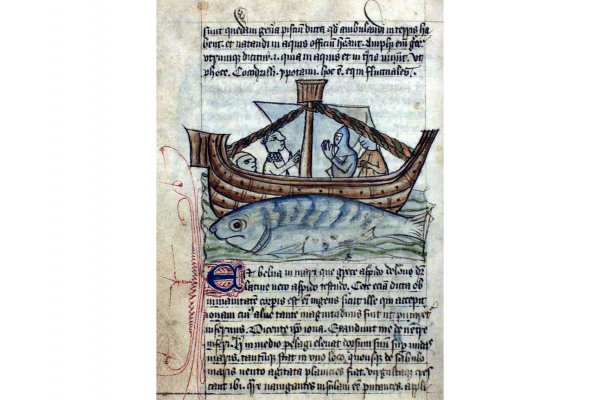 sunt quedam gen'a pisciū dicta qd ambulandi in terris ha
bent. et natandi in aquis officiū Amphi em̄ grece
dicitur .i. quia in aquis et in t'ris uiuūt. vt
phoce. Cocodrilli. ypotami. hoc ē. equi fluctuales.
Est belua in mari que grece aspido delone dr̄
latine uero aspido testudo. Cete eciā dicta ob
inmanitatē corpis est em̄ ingens sicut ille qui excepit
ionam cui' alue tante magnitudinis fuit ut putaret'
infernus. Dicente ip̄o iona. Exaudiuit me de uentre
inferi. in medio pelagi eleuat dorsum suū sup undas
maris. tantūque stat in uno loco. quousque de sabulo
maris uento agitata planicies fiat. uirgultaque cres
cant ibi. nauigantes insulam eē putantes. appli